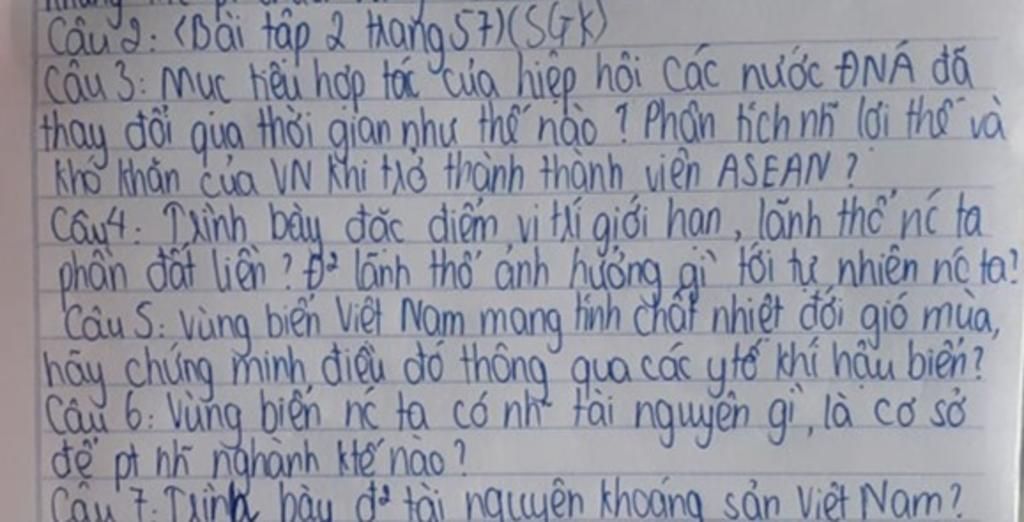 Câu 2: (Bài tập 2 trang 57) (SGK)
Câu 3: Mục tiêu hợp tác của hiệp hội các nước ĐNÁ đã
thay đổi qua thời gian như thế nào? Phân tích nh~ lợi thế và
khó khăn của VN khi trở thành thành viên ASEAN?
Câu 4: Trình bày đặc điểm vị trí giới hạn, lãnh thổ nc ta
phần đất liền? Đ² lãnh thổ ảnh hưởng gì tới tự nhiên nc ta?
Câu 5: Vùng biển Việt Nam mang tính chất nhiệt đới gió mùa,
hãy chứng minh điều đó thông qua các ytố khí hậu biển?
Câu 6: Vùng biển nc ta có nh~ tài nguyên gì, là cơ sở
để pt nh~ nghành ktế nào?
Câu 7: Trình bày đ² tài nguyên khoáng sản Việt Nam?